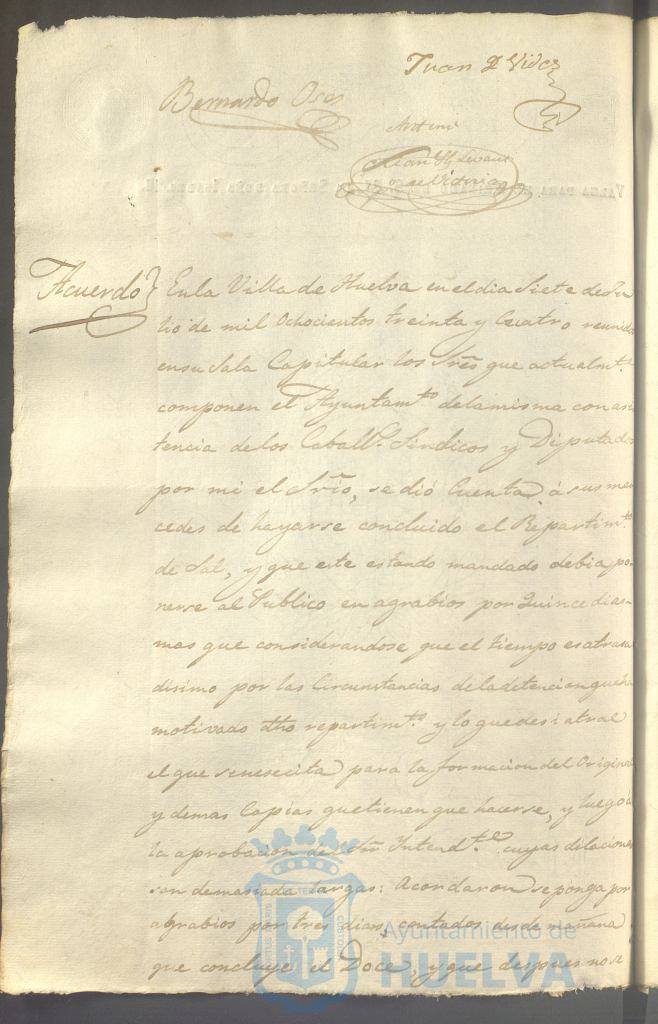 Juan D Vides
Bernardo Oses
Antemi
Juan
de Victoria
Acuerdo} En la Villa de Huelva en el dia Siete de Ju
lio de mil Ochocientos treinta y Cuatro reunidos
en su Sala Capitular los Sres que actualmte
componen el Ayuntamto de la misma con asis
tencia de los Caballs Sindicos y Diputados
por mi el Srio, se dió Cuenta á sus mer
cedes de hayarse concluido el Repartimto
de Sal, y que este estando mandado debia po
nerse al Publico en agrabios por Quince dias
mas que considerandose que el tiempo es atrasa
disimo por las Circunstancias de la detencion que ha
motivado dho repartimto y lo que de si atrae
el que se nesecita para la formacion del Original
y demas Copias que tienen que hacerse, y luego á
la aprobacion del Sor Intendte cuyas dilaciones
son demasiada largas: Acordaron se ponga por
agrabios por tres dias, contados desde mañana
que concluye el Doce, y que despues no se
Ayuntamiento de
HUELVA